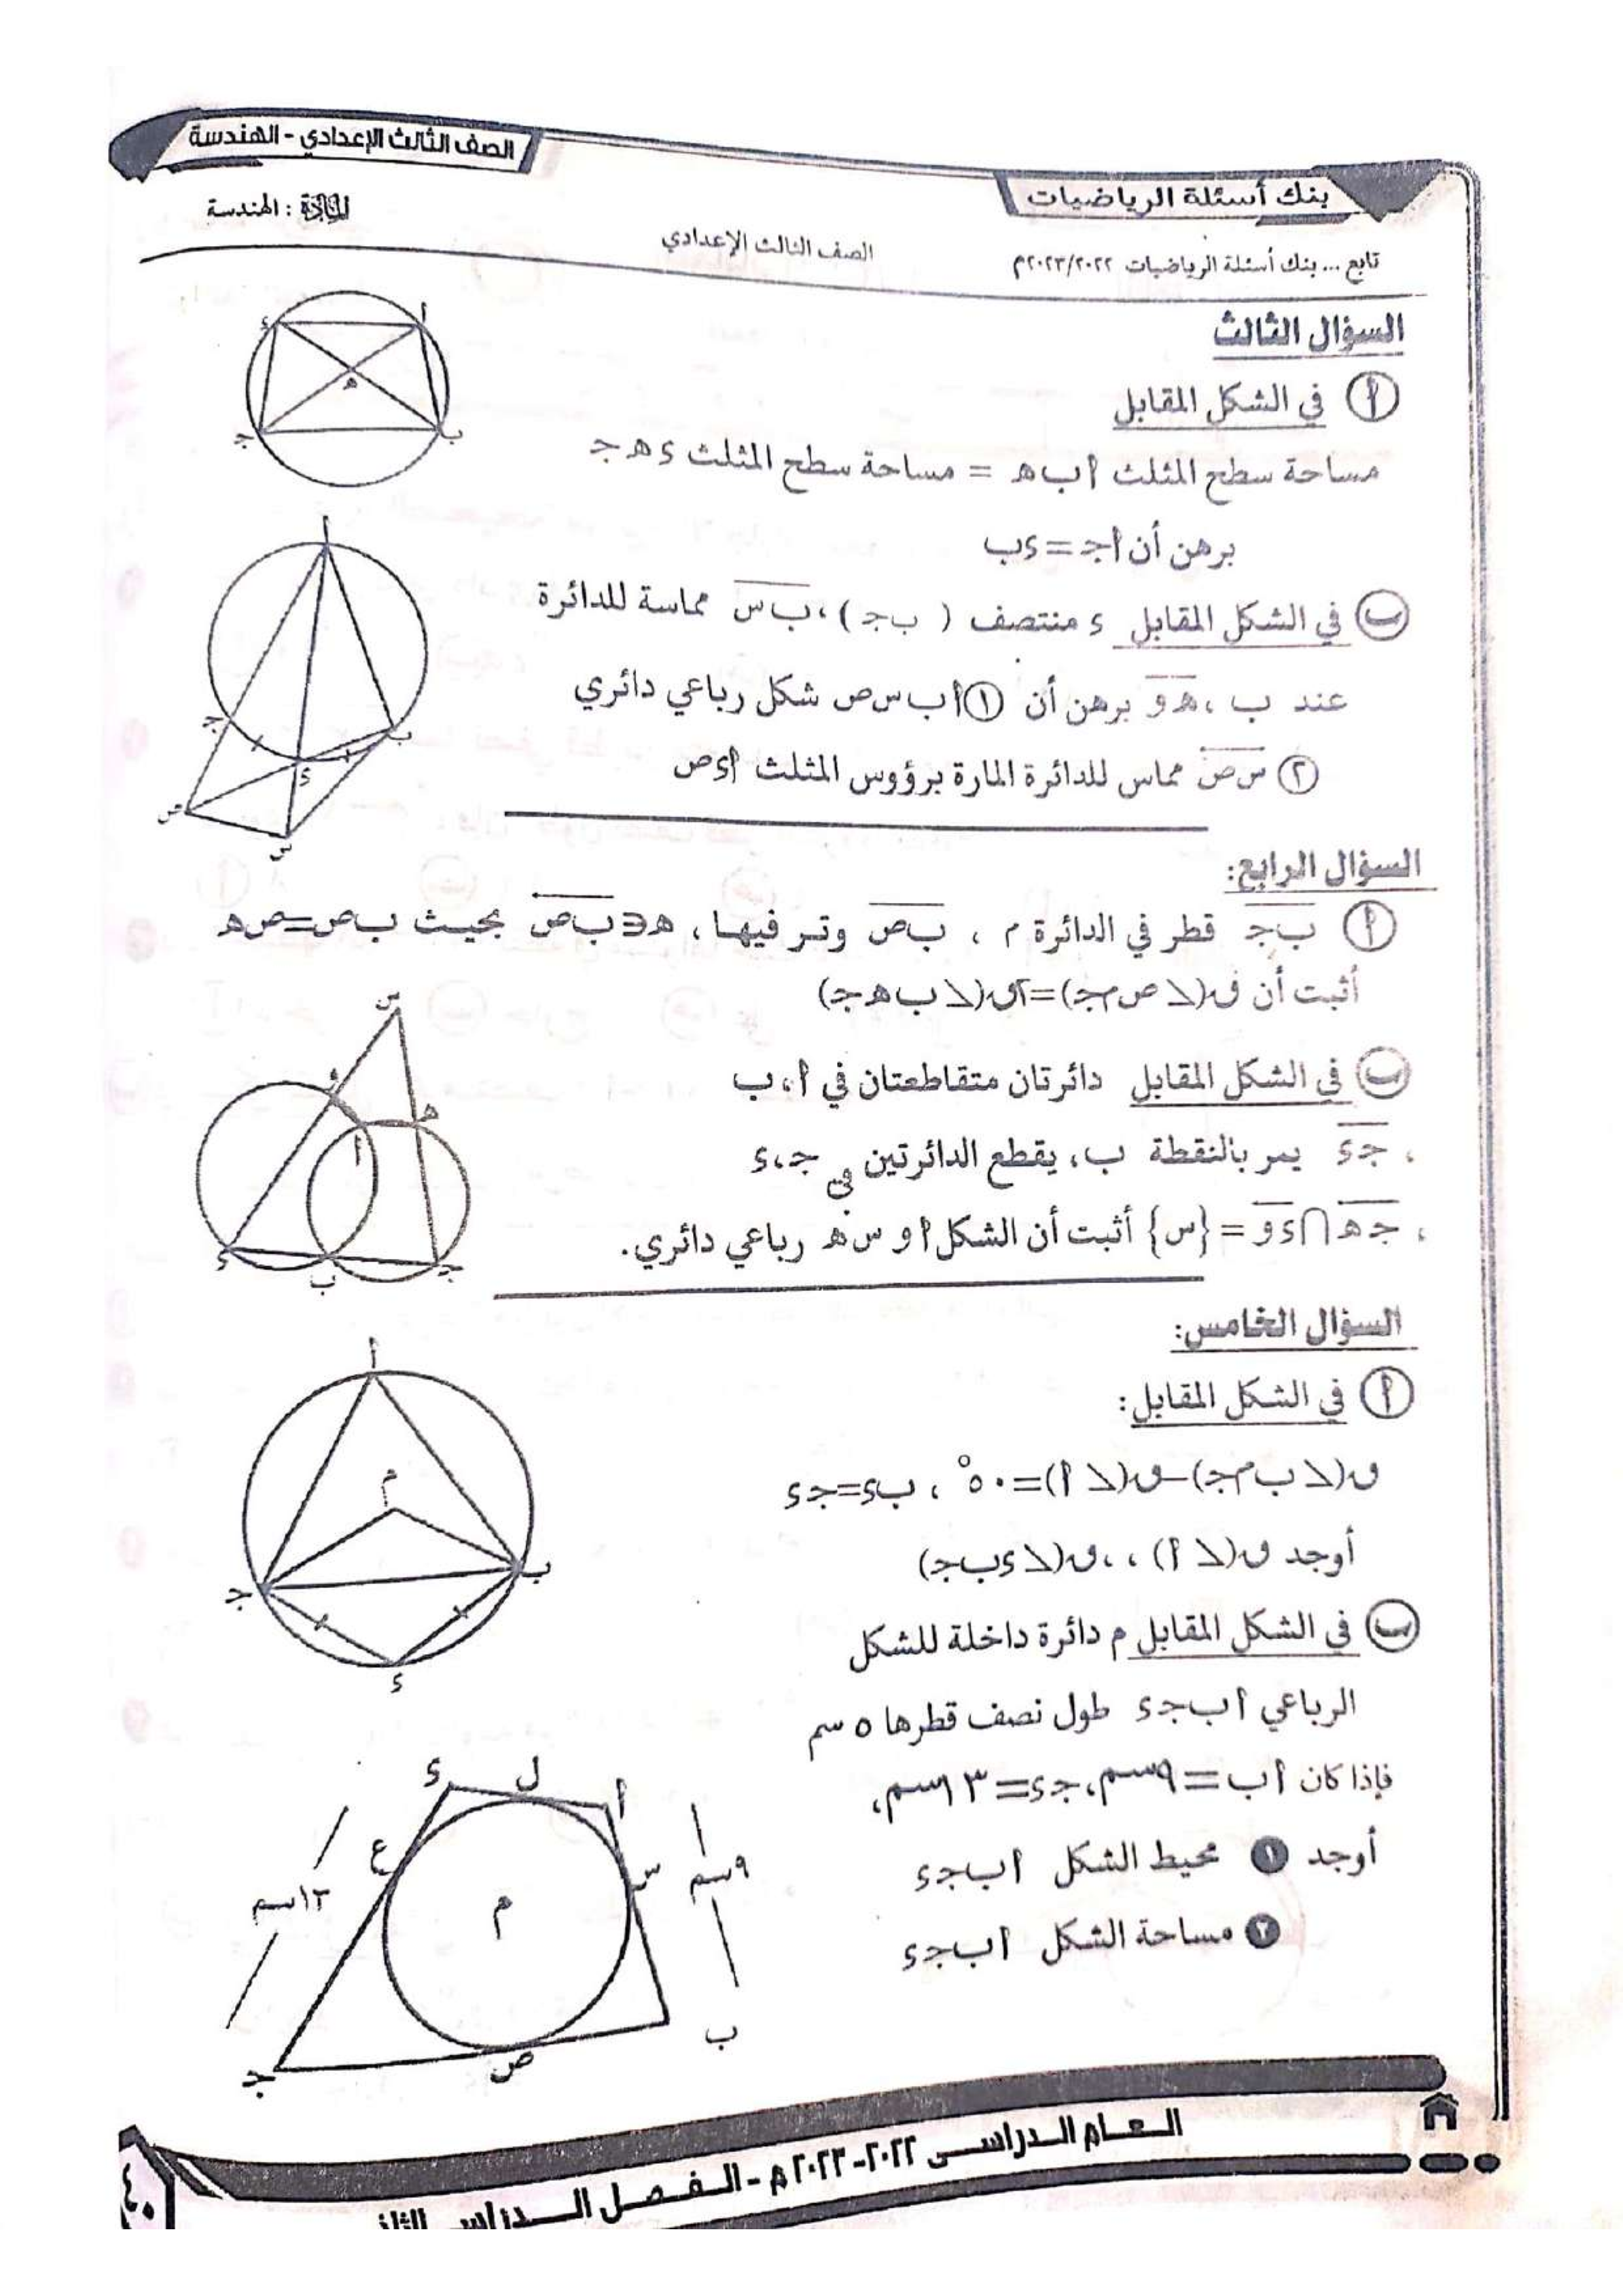 الصف الثالث الإعدادي - الهندسة
بنك أسئلة الرياضيات
المادة : الهندسة
الصف الثالث الإعدادي
تابع ... بنك أسئلة الرياضيات ٢٠٢٣/٢٠٢٢م
السؤال الثالث
أ في الشكل المقابل
مساحة سطح المثلث أ ب هـ = مساحة سطح المثلث ء هـ جـ
برهن أن أ جـ = ء ب
ب في الشكل المقابل ء منتصف ( ب جـ ) ، ب س مماسة للدائرة
عند ب ، هـ و برهن أن ١ أ ب س ص شكل رباعي دائري
٢ س ص مماس للدائرة المارة برؤوس المثلث أ ء ص
أ
ب
جـ
ء
هـ
أ
ب
جـ
ء
ص
س
السؤال الرابع:
أ ب جـ قطر في الدائرة م ، ب ص وتر فيها ، هـ ∈ ب ص بحيث ب ص = ص هـ
أثبت أن ق(∠ ص م جـ) = ٢ق(∠ ب هـ جـ)
ب في الشكل المقابل دائرتان متقاطعتان في أ ، ب
، جـ ء يمر بالنقطة ب ، يقطع الدائرتين في جـ ، ء
، جـ هـ ∩ ء و = {س} أثبت أن الشكل أ و س هـ رباعي دائري.
س
و
هـ
أ
ء
ب
جـ
السؤال الخامس:
أ في الشكل المقابل:
ق(∠ ب م جـ) – ق(∠ أ) = ٥٠° ، ب ء = جـ ء
أوجد ق(∠ أ) ، ، ق(∠ ء ب جـ)
ب في الشكل المقابل م دائرة داخلة للشكل
الرباعي أ ب جـ ء طول نصف قطرها ٥ سم
فإذا كان أ ب = ٩سم، جـ ء = ١٣سم،
أوجد ١ محيط الشكل أ ب جـ ء
٢ مساحة الشكل أ ب جـ ء
أ
م
ب
جـ
ء
ء
ل
أ
ع
س
٩سم
١٣سم
م
ب
ص
جـ
العام الدراسى ٢٠٢٢-٢٠٢٣م - الفصل الدراسى
٤٠